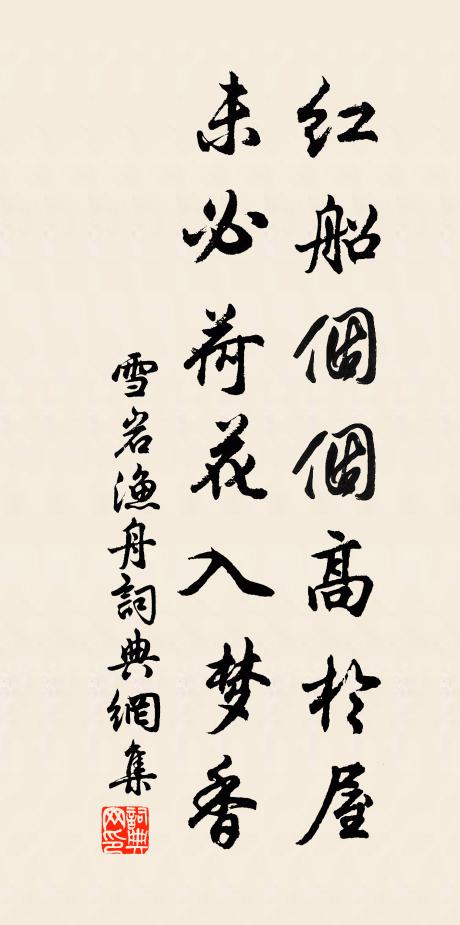 红船個個高於屋
未必荷花入梦香
雪岩漁舟詞典網集
詞典網印